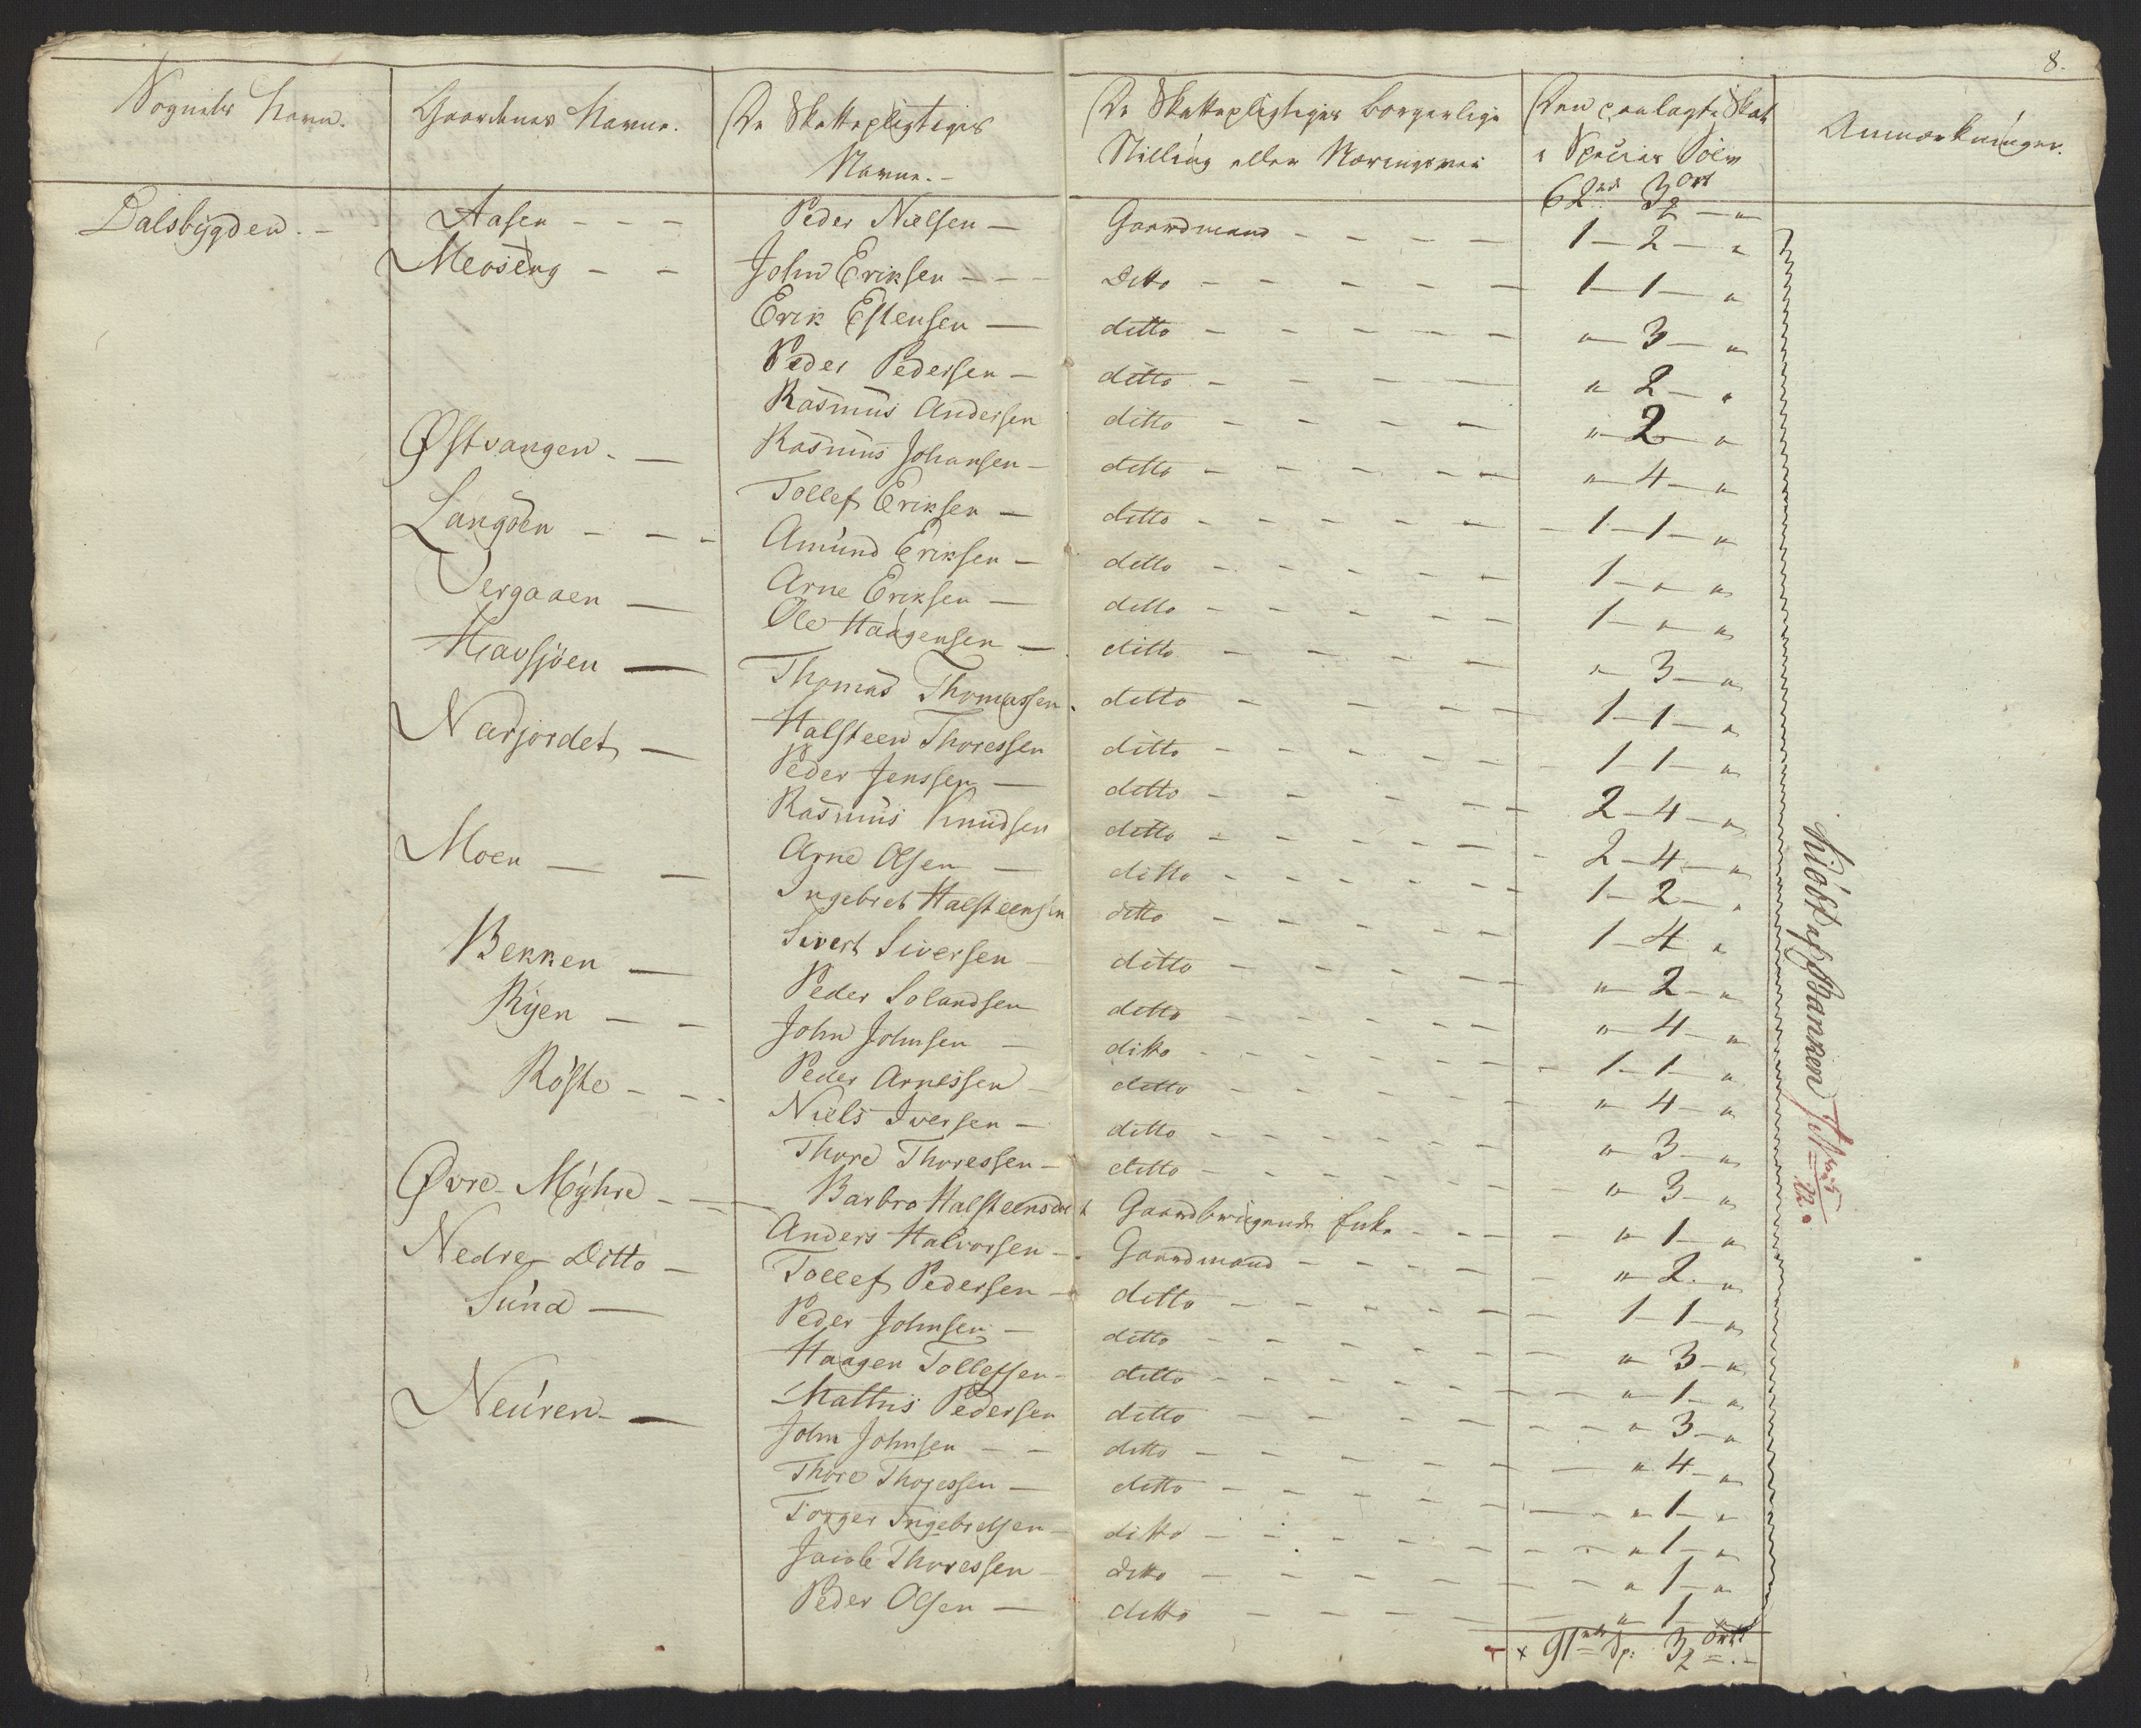 8.
Sognets Navn. Gaardenes Navne. De Skattepligtiges Navne. - De Skattepligtiges borgerlige Stilling eller Næringsvei Den paalagte Skat i Species Sølv Anmærkninger.
62 3 Ort
Dalsbygden. - Aasen - - - Peder Nielsen - Gaardmand - - - - 1 - 2 - "
Meoseng - - John Eriksen - - - Ditto - - - - - 1 - 1 - "
Erik Estensen - ditto - - - - - " - 3 - "
Peder Pedersen - ditto - - - - " - 2 - "
Rasmus Andersen ditto - - - - " - 2 - "
Østvangen. - Rasmus Johansen - ditto - - - - - " - 4 - "
Tollef Eriksen - ditto - - - - - - 1 - 1 - "
Langøen - - - Amund Eriksen - ditto - - - - - 1 - " - "
Vergaaen - Arne Eriksen - ditto - - - - - 1 - " - "
Havsjöen - Ole Haagensen - ditto - - - - " - 3 - "
Thomas Thomassen. ditto - - - - - 1 - 1 - "
Narjordet - Halsteen Thoressen ditto - - - - - - 1 - 1 - "
Peder Jenssen - ditto - - - - - 2 - 4 - "
Rasmus Knudsen ditto - - - - - - 2 - 4 - "
Moen - - Arne Olsen - ditto - - - - - 1 - 2 - "
Ingebret Halsteensen ditto - - - - - 1 - 4 "
Bekken - Sivert Siversen - ditto - - - - - " - 2 - "
Ryen - - Peder Solandsen ditto - - - - - " - 4 - "
John Johnsen - ditto - - - - - - 1 - 1 - "
Røste - - - Peder Arnessen - ditto - - - - - " - 4 - "
Niels Iversen - ditto - - - - - " - 3 - "
Thore Thoressen - ditto - - - - - " - 3 - "
Øvre Myhre - - Barbro Halsteensdat Gaardbrugende Enke - - - - " - 1 - "
Nedre Ditto - Anders Halvorsen - Gaardmand - - - - - " - 2 - "
Sund - Tollef Pedersen - ditto - - - - - - 1 - 1 - "
Peder Johnsen - ditto - - - - - " - 3 - "
Haagen Tollefsen - ditto - - - - - " - 1 - "
Neuren - Mathis Pedersen ditto - - - - - " - 3 - "
John Johnsen - - ditto - - - - - " 4 - "
Thore Thoressen - ditto - - - - - - " - 1 - "
Torger Ingebretsen - ditto - - - - - - " 1 - "
Jacob Thoressen - ditto - - - - - - " 1 - "
Peder Olsen - ditto - - - - - " - 1 - "
x 91 Sp: 3 Ort
Kiøbt af Banken
22.